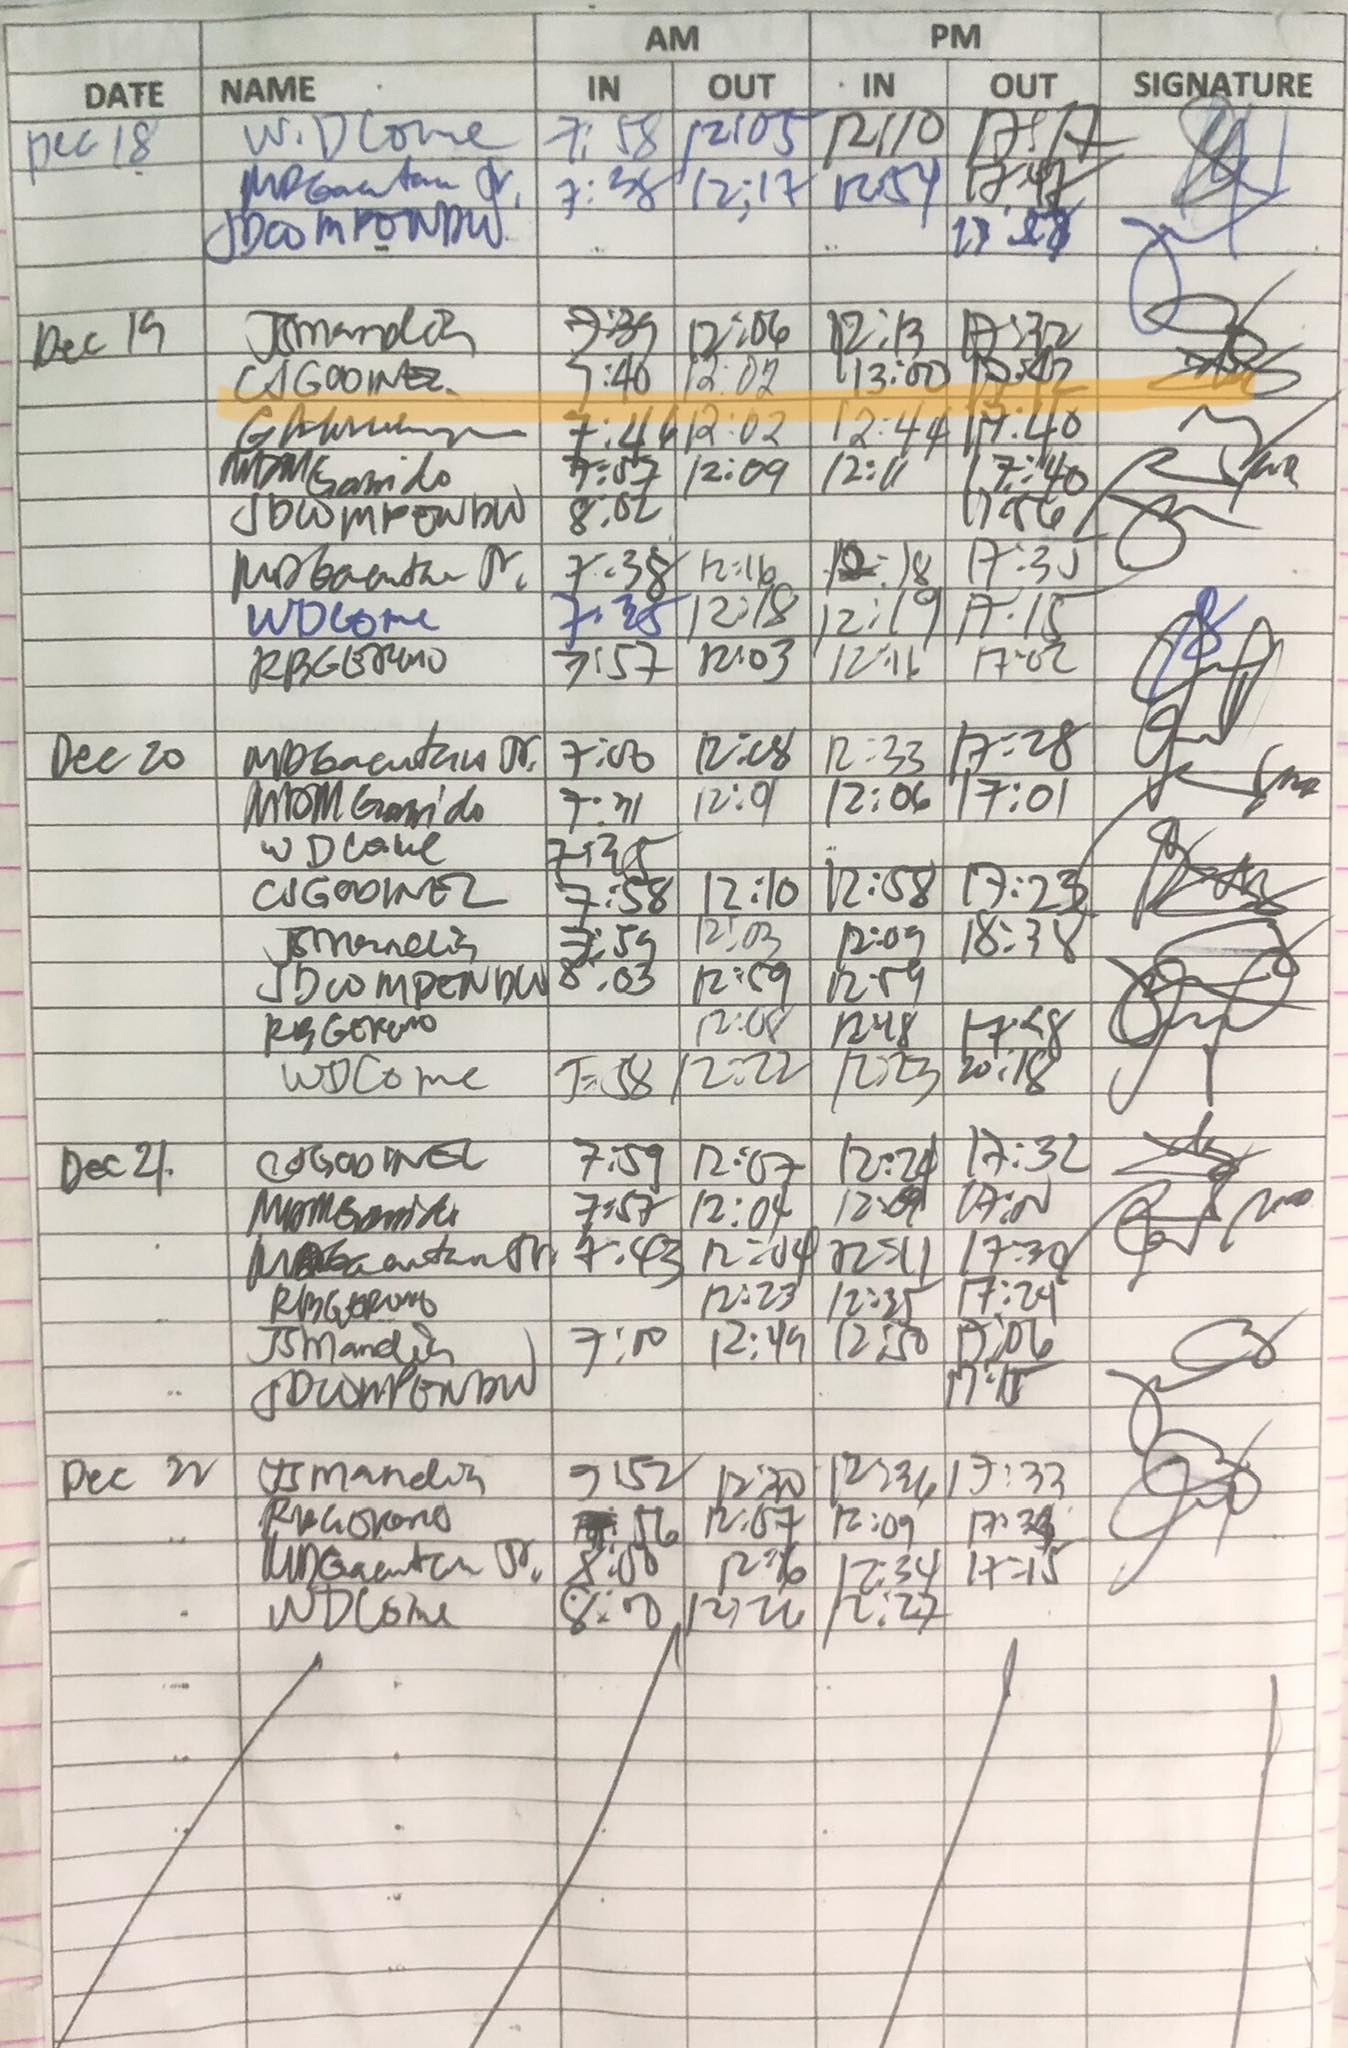 AM PM
DATE NAME IN OUT IN OUT SIGNATURE
Dec 18 W.D Come 7:58 12:05 12:10
MDGacutan Jr. 7:38 12:17 12:54 17:47
JDCOMPENDIW
Dec 19 JSMandin 7:39 12:06 12:13 17:32
CJGODINEZ 7:40 12:02 13:00 17:42
7:46 12:02 12:44 17:40
MDMGarrido 7:57 12:09 12:11 17:40
JDCOMPENDIW 8:02 17:56
MDGacutan Jr. 7:38 12:16 12:18 17:35
WDCome 7:35 12:18 12:19 17:15
RBGERONO 7:57 12:03 12:16 17:02
Dec 20 MDGacutan Jr. 7:00 12:08 12:33 17:28
MDMGarrido 7:31 12:01 12:06 17:01
WDCome
CJGODINEZ 7:58 12:10 12:58 17:23
JSMandin 7:59 12:03 12:09 18:38
JDCOMPENDIW 8:03 12:59 12:59
RBGERONO 12:08 12:48 17:58
WDCome 7:58 12:22 12:23 20:18
Dec 21. CJGODINEZ 7:59 12:07 12:24 17:32
MDMGarrido 7:57 12:04 12:09 17:01
MDGacutan Jr. 7:43 12:04 12:11 17:30
RBGERONO 12:23 12:35 17:29
JSMandin 7:00 12:49 12:50 17:06
JDCOMPENDIW 17:15
Dec 22 JSMandin 7:52 12:30 12:36 17:33
RBGERONO :56 12:07 12:09
MDGacutan Jr. 8:00 12:16 12:34 17:15
WDCome 8:00 12:26 12:27